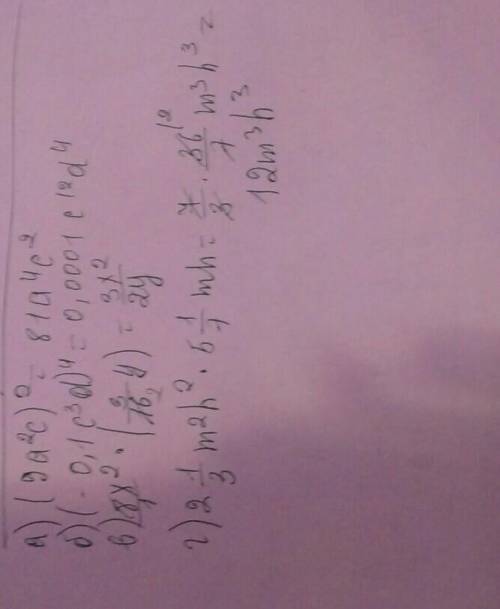 а) (9a²c)² = 81a⁴c²
б) (-0,1c³d)⁴ = 0,0001c¹²d⁴
в) 8x² · (3/16 y) = 3x²/2y
г) 2 1/3 m²h² · 5 1/7 mh = 7/3 · 36/7 m³h³ =
12m³h³